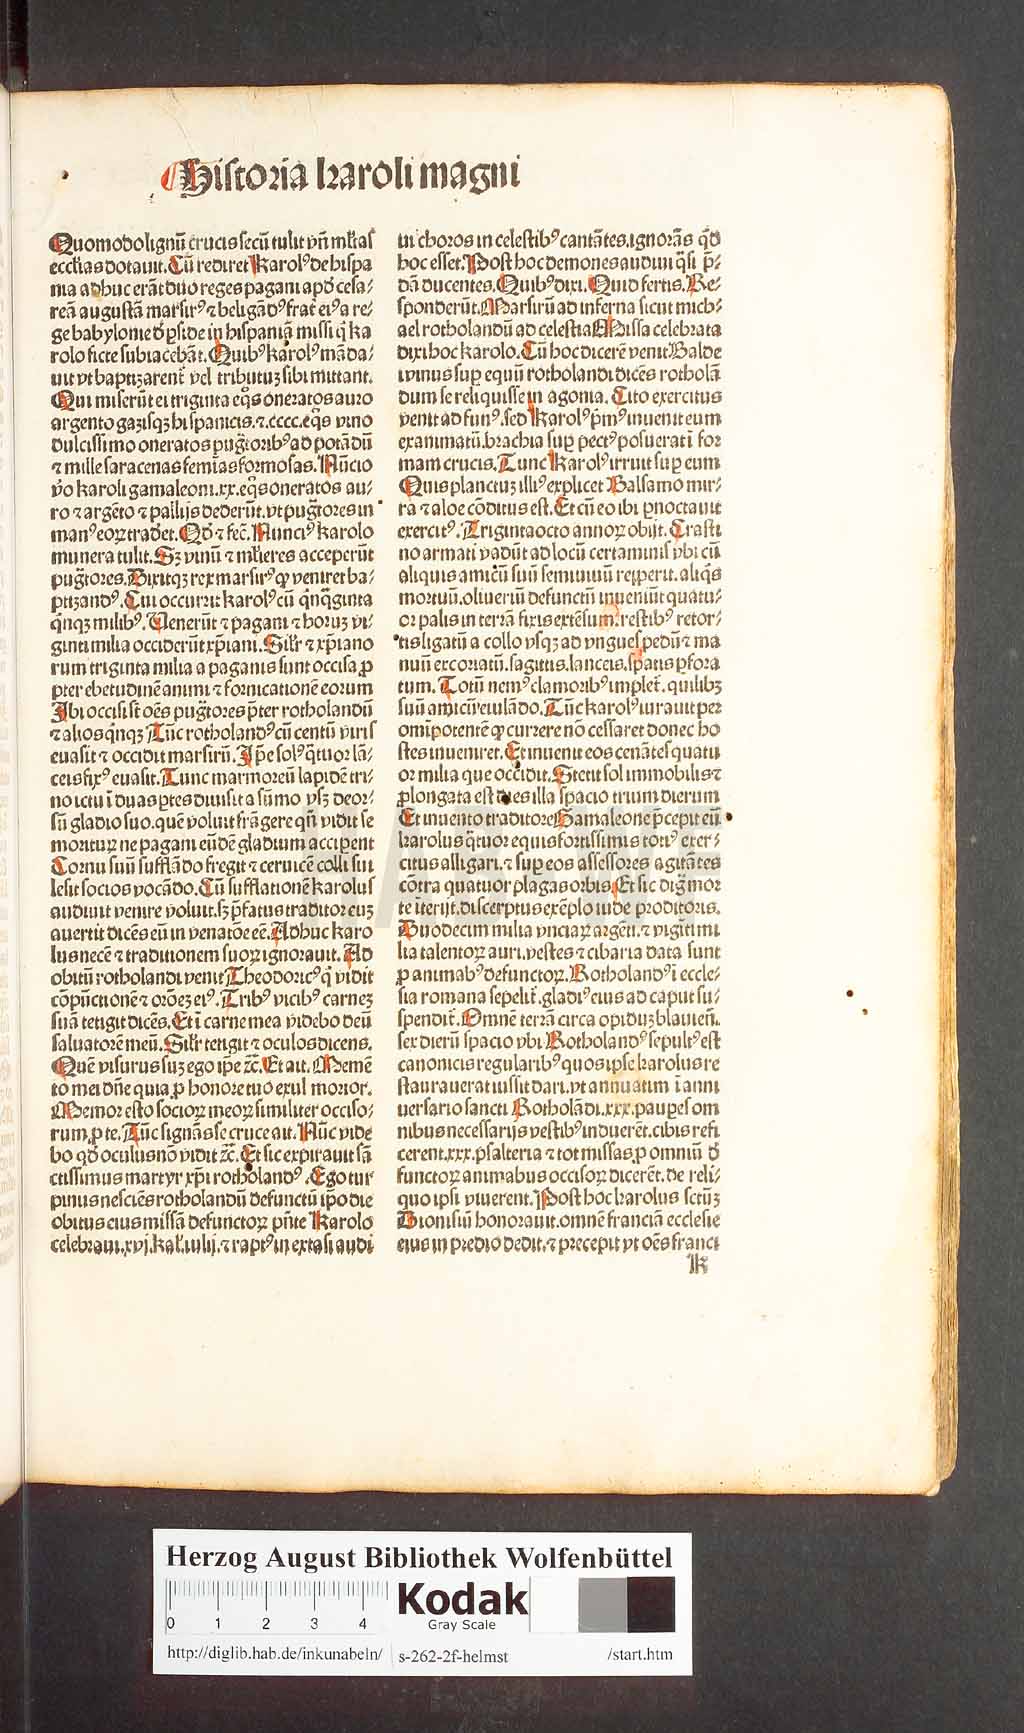 Historia karoli magni
Quomodo lignū crucis secū tulit vñ ml̃tas
eccl̃ias dotauit. Cū rediret Karolꝰ de hispa
nia adhuc erāt duo reges pagani apď cesa-
reā augustā marsirꝰ ⁊ beligādꝰ frat̃ eiꝰ a re-
ge babylonie ď ꝑside in hispaniā missi q̇ ka
rolo ficte subiacebāt. Quibꝰ karolꝰ māda-
uit vt baptizarent᷑ vel tributuꝫ sibi mittant.
Qui miserūt ei triginta eq̊s oneratos auro
argento gazisqꝫ hispanicis. ⁊.cccc. eq̊s vino
dulcissimo oneratos pugᷓtoribꝰ ad potādū
⁊ mille saracenas femias formosas. Nūcio
v̊o karoli gamaleoni.xx. eq̊s oneratos au-
ro ⁊ argēto ⁊ pallijs dederūt. vt pugᷓtores in
manꝰ eoꝝ trađet. Qđ ⁊ fec̄. Nunciꝰ karolo
munera tulit. Sꝫ vinū ⁊ ml̃ieres acceperūt
pugᷓtores. Dixitqꝫ rex marsirꝰ ꝙ veniret ba-
ptizandꝰ. Cui occurrit karolꝰ cū q̇nqᷓginta
q̇nqꝫ milibꝰ. Uenerūt ⁊ pagani ⁊ hoꝝ vi-
ginti milia occiderūt xp̄iani. Sil̃r ⁊ xp̄iano
rum triginta milia a paganis sunt occisa ꝓ
pter ebetudinē animi ⁊ fornicationē eorum
Ibi occisi st̄ oēs pugᷓtores p̄ter rotholandū
⁊ alios q̇nqꝫ Tūc rotholandꝰ cū centū viris
euasit ⁊ occidit marsirū. Ip̄e solꝰ qᷓtuor lā-
ceis fixꝰ euasit. Tunc marmoreū lapidē tri-
no ictu ī duas ꝑtes diuisit a sūmo vsꝫ deor-
sū gladio suo. quē voluit frāgere qñ vidit se
moriturꝫ ne pagani eūdē gladium acciperent
Cornu suū sufflādo fregit ⁊ ceruicē colli sui
lesit socios vocādo. Cū sufflationē karolus
audiuit venire voluit. sꝫ p̄fatus traditor euꝫ
auertit dicēs eū in venatōe eē. Adhuc karo
lus necē ⁊ traditionem suoꝝ ignorauit. Ad
obitū rotholandi venit Theodoricꝰ q̇ vidit
cōpūctionē ⁊ orōeꝫ eiꝰ. Tribꝰ vicibꝰ carneꝫ
suā tetigit dicēs. Et ī carne mea videbo deū
saluatorē meū. Sil̃r tetigit ⁊ oculos dicens.
Quē visurus suꝫ ego ip̄e ⁊c̄. Et ait. Memē
to mei dn̄e quia ꝓ honore tuo exul morior.
Memor esto socioꝝ meoꝝ similiter occiso-
rum, ꝓ te. Tūc signās se cruce ait. Nūc vide
bo qđ oculus nō vidit ⁊c̄. Et sic expirauit sā
ctissimus martyr xp̄i rotholandꝰ. Ego tur
pinus nesciēs rotholandū defunctū ip̄o die
obitus eius missā defunctoꝝ p̄nte Karolo
celebraui.xvj. kal̃. iulij. ⁊ raptꝰ in extasi audi
ui choros in celestibꝰ cantātes. ignorās qđ
hoc esset. Post hoc demones audiui q̇si p̄-
dā ducentes. Quibꝰ dixi. Quid fertis. Re-
sponderūt. Marsirū ad inferna sicut mich-
ael rotholandū ad celestia Missa celebrata
dixi hoc karolo. Cū hoc dicerē venit Balde
winus suꝑ equū rotholandi dicēs rotholā
dum se reliquisse in agonia. Cito exercitus
venit ad funꝰ. sed Karolꝰ p̄mꝰ inuenit eum
exanimatū. brachia suꝑ pectꝰ posuerat ī for
mam crucis. Tunc Karolꝰ irruit suꝑ eum
Quis planctuꝫ illiꝰ explicet Balsamo mir-
ra ⁊ aloe cōditus est. Et cū eo ibi ꝑnoctauit
exercitꝰ. Triginta octo annoꝝ obijt. Crasti
no armati vadūt ad locū certaminis vbi cū
aliquis amicū suū semiuiuū reꝑperit. aliq̊s
mortuū. oliueriū defunctū inueniūt quatu-
or palis in terrā fixis extēsum. restibꝰ retor-
tis ligatū a collo vsqꝫ ad vngues pedū ⁊ ma
nuū excoriatū. sagittis. lanceis. spatis ꝑfora
tum. Totū nemꝰ clamoribꝰ implet᷑. quilibꝫ
suū amicū eiulādo. Tūc karolꝰ iurauit per
omīpotentē ꝙ currere nō cessaret donec ho
stes inueniret. Et inuenit eos cenātes quatu
or milia que occidit. Stetit sol immobilis ⁊
ꝓlongata est dies illa spacio trium dierum
Et inuento traditore Gamaleone p̄cepit eū
karolus qᷓtuor equis fortissimis totiꝰ exer-
citus alligari. ⁊ suꝑ eos assessores agitātes
cōtra quatuor plagas orbis. Et sic digᷓ mor
te īterijt. discerptus exēplo iude proditoris.
Duodecim milia vnciaꝝ argēti. ⁊ vigīti mi
lia talentoꝝ auri. vestes ⁊ cibaria data sunt
ꝓ animabꝰ defunctoꝝ. Rotholandꝰ ī eccle-
sia romana sepelit᷑. gladiꝰ eius ad caput su-
spendit᷑. Omnē terrā circa opiduꝫ blauien̄.
sex dierū spacio vbi Rotholandꝰ sepultꝰ est
canonicis regularibꝰ quos ipse karolus re
staurauerat iussit dari. vt annuatim ī anni
uersario sancti Rotholādi.xxx. pauꝑes om
nibus necessarijs vestibꝰ induerēt. cibis refi
cerent.xxx. psalteria ⁊ tot missas ꝓ omniū đ
functoꝝ animabus occisoꝝ dicerēt. de reli-
quo ipsi viuerent. Post hoc karolus sctūꝫ
Dionisiū honorauit. omnē franciā ecclesie
eius in predio dedit. ⁊ precepit vt oēs franci
k
Herzog August Bibliothek Wolfenbüttel
0 1 2 3 4
Kodak
Gray Scale
http://diglib.hab.de/inkunabeln/ s-262-2f-helmst /start.htm